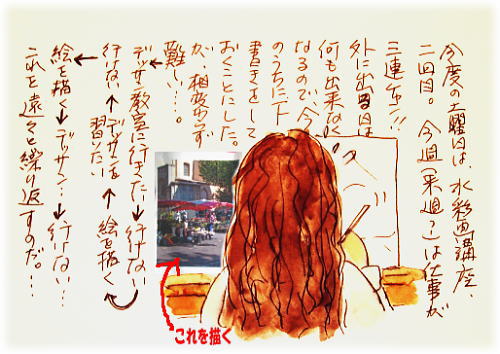 今度の土曜日は、水彩画講座、
二回目。今週(来週?)は仕事が
三連チャン!!
外に出る日は
何も出来なく
なるので、今
のうちに下
書きをして
おくことにした。
が、相変らず
難しい…。
デッサン教室に行きたい→行けない
行けない↑デッサンを習いたい↑絵を描く
絵を描く→デッサン…→行けない…
これを遠々と繰り返すのだ。…
これを描く